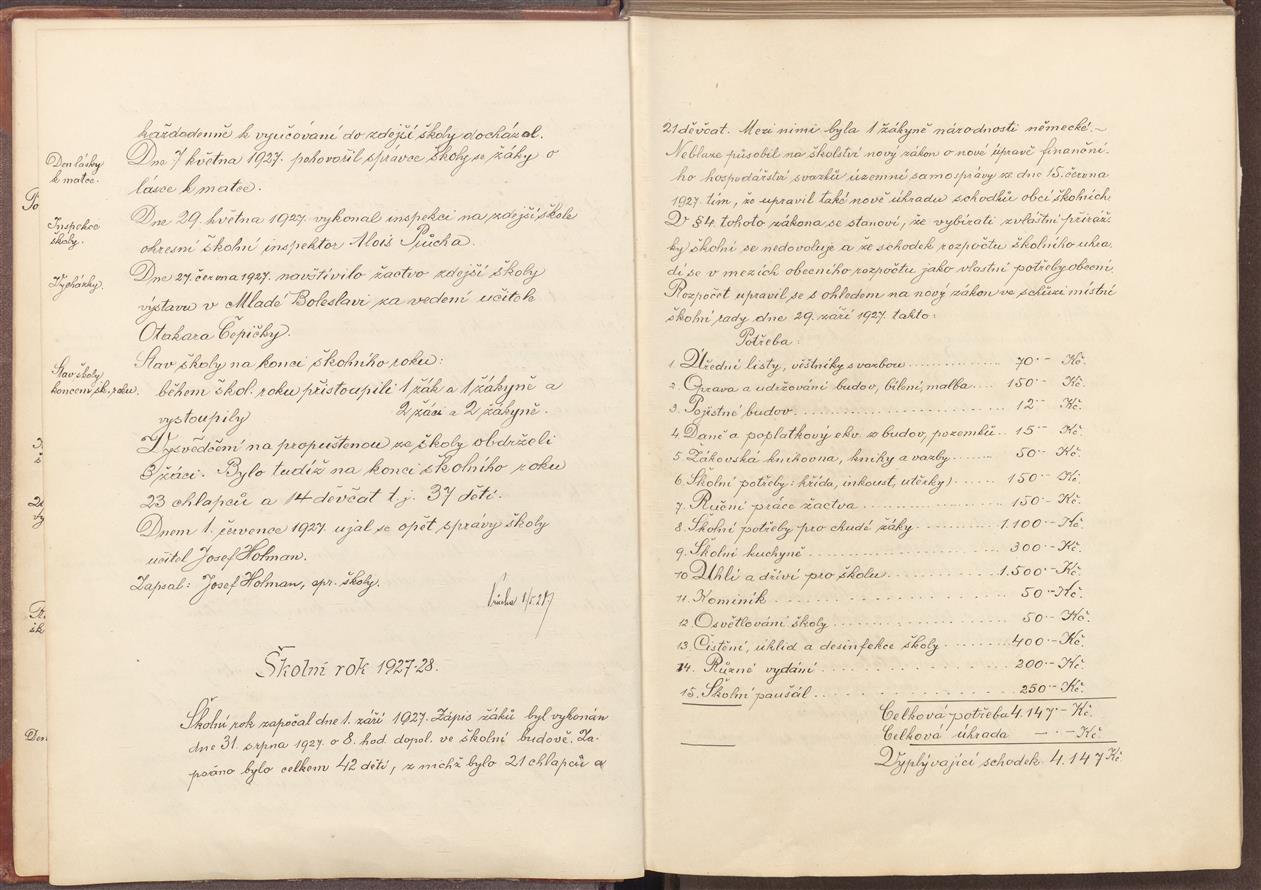 každodenně k vyučování do zdejší školy docházal.
Den lásky
k matce.
Dne 7 května 1927. pohovořil správce školy se žáky o
lásce k matce.
Inspekce
školy.
Dne 29. května 1927. vykonal inspekci na zdejší škole
okresní školní inspektor Alois Průcha.
Vycházky.
Dne 27. června 1927. navštívilo žactvo zdejší školy
výstavu v Mladé Boleslavi za vedení učitele
Otakara Čepičky.
Stav školy
koncem šk. roku.
Stav školy na konci školního roku:
během škol. roku přistoupili: 1 žák a 1 žákyně a
vystoupily 2 žáci a 2 žákyně.
Vysvědčení na propuštěnou ze školy obdrželi
3 žáci. Bylo tudíž na konci školního roku
23 chlapců a 14 děvčat t.j. 37 dětí.
Dnem 1. července 1927. ujal se opět správy školy
učitel Josef Holman.
Zapsal: Josef Holman, spr. školy.
Průcha
Školní rok 1927-28.
Školní rok započal dne 1. září 1927. Zápis žáků byl vykonán
dne 31. srpna 1927. o 8. hod. dopol. ve školní budově. Za-
psáno bylo celkem 42 dětí, z nichž bylo 21 chlapců a
21 děvčat. Mezi nimi byla 1 žákyně národnosti německé. ~
Neblaze působil na školství nový zákon o nové úpravě finanční-
ho hospodářství svazků územní samosprávy ze dne 15. června
1927. tím, že upravil také nově úhradu schodků obcí školních.
V § 4. tohoto zákona se stanoví, že vybírati zvláštní přiráž-
ky školní se nedovoluje a že schodek rozpočtu školního uhra-
dí se v mezích obecního rozpočtu jako vlastní potřeby obecní.
Rozpočet upravil se s ohledem na nový zákon ve schůzi místní
školní rady dne 29. září 1927. takto:
Potřeba:
1. Úřední listy, věstníky s vazbou ........ 70·- Kč.
2. Oprava a udržování budov, bílení, malba .... 150·- Kč.
3. Pojistné budov ........ 12·- Kč.
4. Daně a poplatkový ekv. z budov, pozemků .. 15·- Kč.
5. Žákovská knihovna, knihy a vazby ...... 50·- Kč.
6. Školní potřeby: křída, inkoust, utěrky) ...... 150·- Kč.
7. Ruční práce žactva ........ 150·- Kč.
8. Školní potřeby pro chudé žáky ........ 1.100·- Kč.
9. Školní kuchyně ........ 300·- Kč.
10. Uhlí a dříví pro školu ........ 1.500·- Kč.
11. Kominík ........ 50·- Kč.
12. Osvětlování školy ........ 50·- Kč.
13. Čistění, úklid a desinfekce školy ........ 400·- Kč.
14. Různé vydání ........ 200·- Kč.
15. Školní paušál ........ 250·- Kč.
Celková potřeba 4.147·- Kč.
Celková úhrada -·- Kč.
Vyplývající schodek 4.147 Kč.